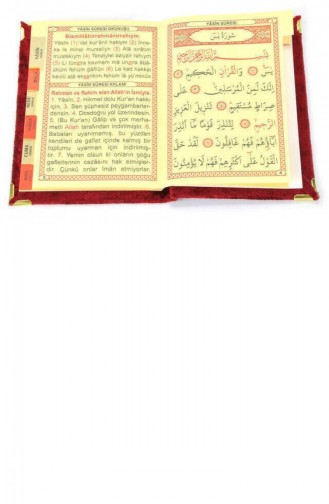 YÂSİN SÛRESİ OKUNUŞU
Bismillâhirrahmânirrahîym.
Yâsîn (1) Vel kur'ânil hakiym (2) İnne-
ke le minel murseliyn (3) Alâ sırâtım
mustekıym (4) Tenziylel azıyzir rahıym
(5) Li tünzira kavmem mâ ünzira âbâ-
ühüm fehüm ğâfilûn (6) Le kad hakkal
kavlü alâ ekserihim fehüm lâ yü'minûn
YÂSİN SÛRESİ ANLAMI
Rahman ve Rahim olan Allah'ın ismiyle.
1. Yâsin, 2. Hikmet dolu Kur'an hakkı
için, 3. Sen şüphesiz peygamberler-
densin. 4. Dosdoğru yol üzerindesin.
5. (Bu Kur'an) Gâlip ve çok merha-
metli Allah tarafından indirilmiştir. 6.
Babaları uyarılmamış, bu yüzden
kendileri de gaflet içinde kalmış bir
toplumu uyarman için indirilmiş-
tir. 7. Yemin olsun ki onların çoğu
gafletlerinin cezâsını hak etmişler-
dir. Çünkü onlar îmân etmiyorlar.
YÂSİN SÛRESİ
سُورَةُ يٰسٓ
يٰسٓ وَالْقُرْاٰنِ الْحَك۪يمِ
اِنَّكَ لَمِنَ الْمُرْسَل۪ينَ عَلٰى
صِرَاطٍ مُسْتَق۪يمٍ تَنْز۪يلَ الْعَز۪يزِ
الرَّح۪يمِ لِتُنْذِرَ قَوْمًا مَٓا اُنْذِرَ
اٰبَٓاؤُ۬هُمْ فَهُمْ غَافِلُونَ لَقَدْ حَقَّ
الْقَوْلُ عَلٰٓى اَكْثَرِهِمْ فَهُمْ لَا يُؤْمِنُونَ